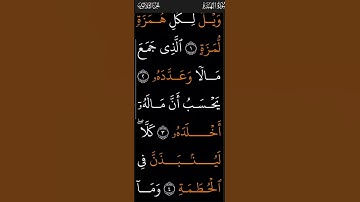 سُورَةُ الهُمَزَةِ
وَيْلٌ لِّكُلِّ هُمَزَةٍ
لُّمَزَةٍ ١ ٱلَّذِى جَمَعَ
مَالًا وَعَدَّدَهُۥ ٢
يَحْسَبُ أَنَّ مَالَهُۥٓ
أَخْلَدَهُۥ ٣ كَلَّاۖ
لَيُنۢبَذَنَّ فِى
ٱلْحُطَمَةِ ٤ وَمَآ